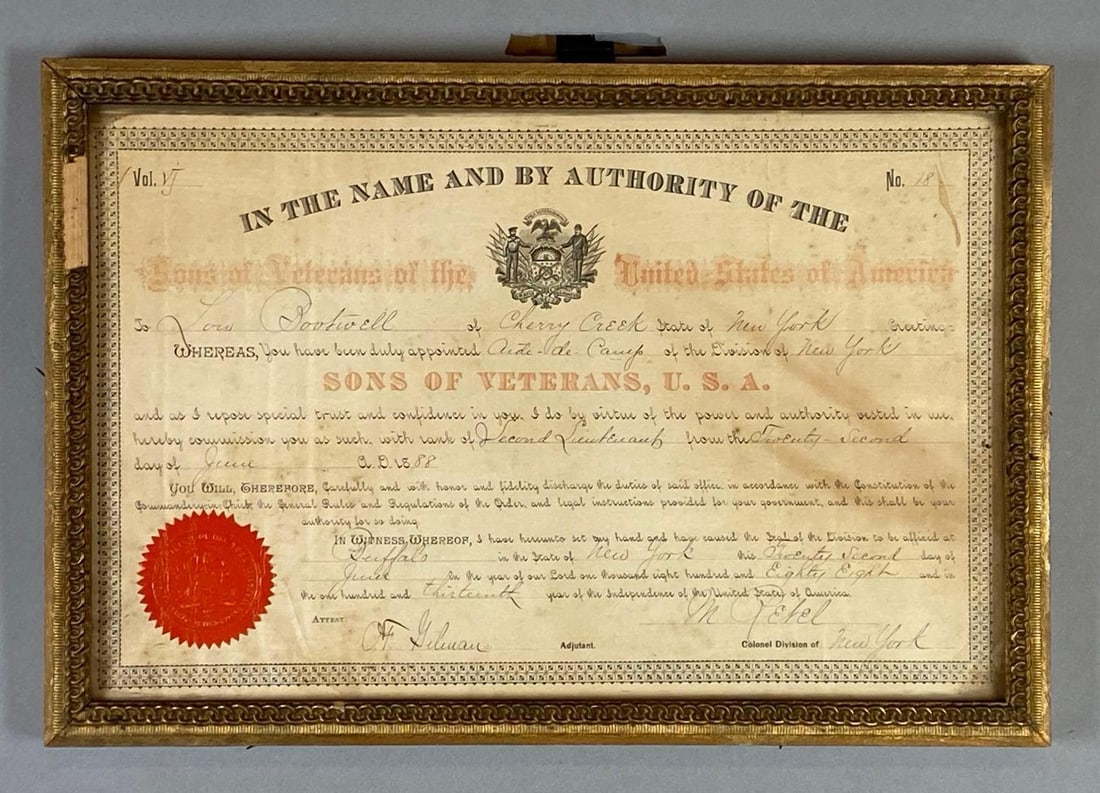 Vol. VI No. 18
IN THE NAME AND BY AUTHORITY OF THE
Sons of Veterans of the United States of America
To Bootwell of Cherry Creek State of New York Greeting
WHEREAS, You have been duly appointed Aide-de-Camp of the Division of New York
SONS OF VETERANS, U. S. A.
and as I repose special trust and confidence in you, I do by virtue of the power and authority vested in me,
hereby commission you as such, with rank of Second Lieutenant from the Twenty-Second
day of June A.D. 1888
YOU WILL, THEREFORE, Carefully and with honor and fidelity discharge the duties of said office, in accordance with the Constitution of the
Commandery-in-Chief, the General Rules and Regulations of the Order, and legal instructions provided for your government, and this shall be your
authority for so doing.
IN WITNESS WHEREOF, I have hereunto set my hand and have caused the Seal of the Division to be affixed at
Buffalo in the State of New York this Twenty Second day of
June In the year of our Lord one thousand eight hundred and Eighty Eight and in
the one hundred and thirteenth year of the Independence of the United States of America.
ATTEST:
Gilman Adjutant. Colonel Division of New York